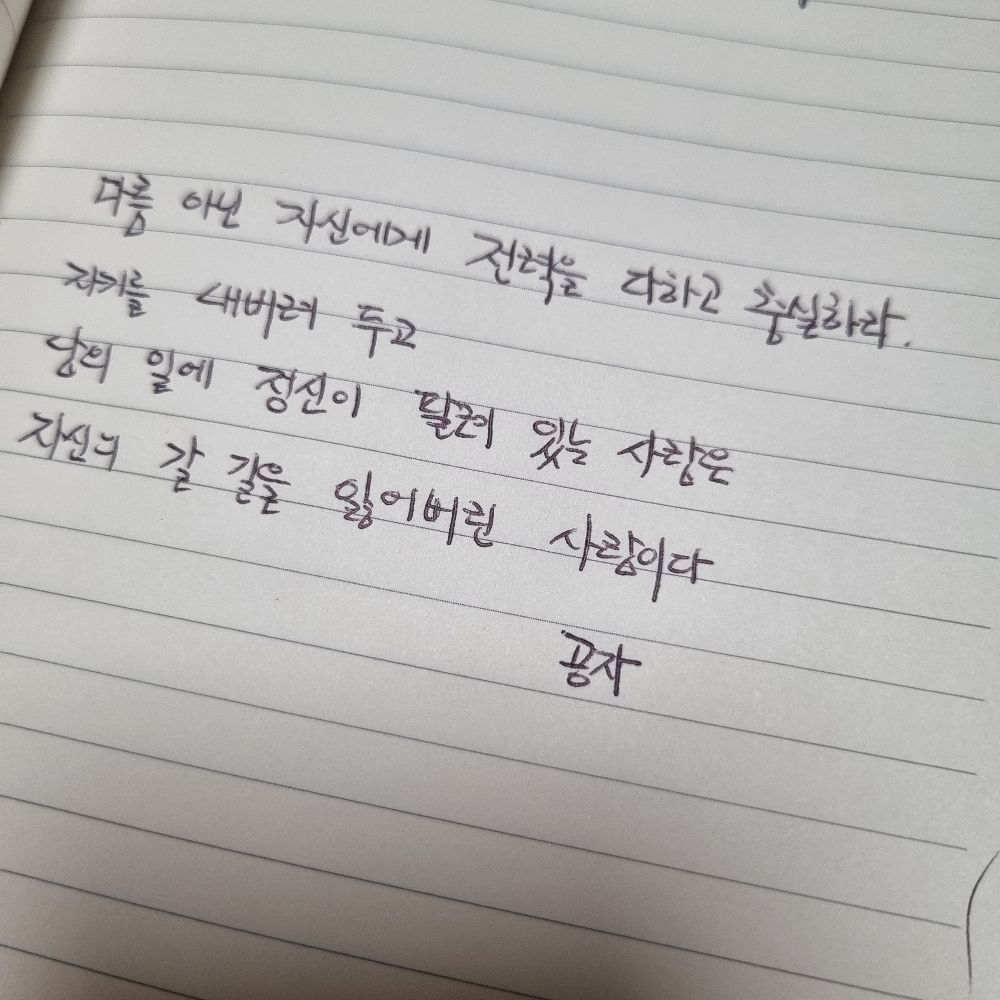 다름 아닌 자신에게 전력을 다하고 충실하라.
자기를 내버려 두고
남의 일에 정신이 팔려 있는 사람은
자신의 갈 길을 잃어버린 사람이다
공자